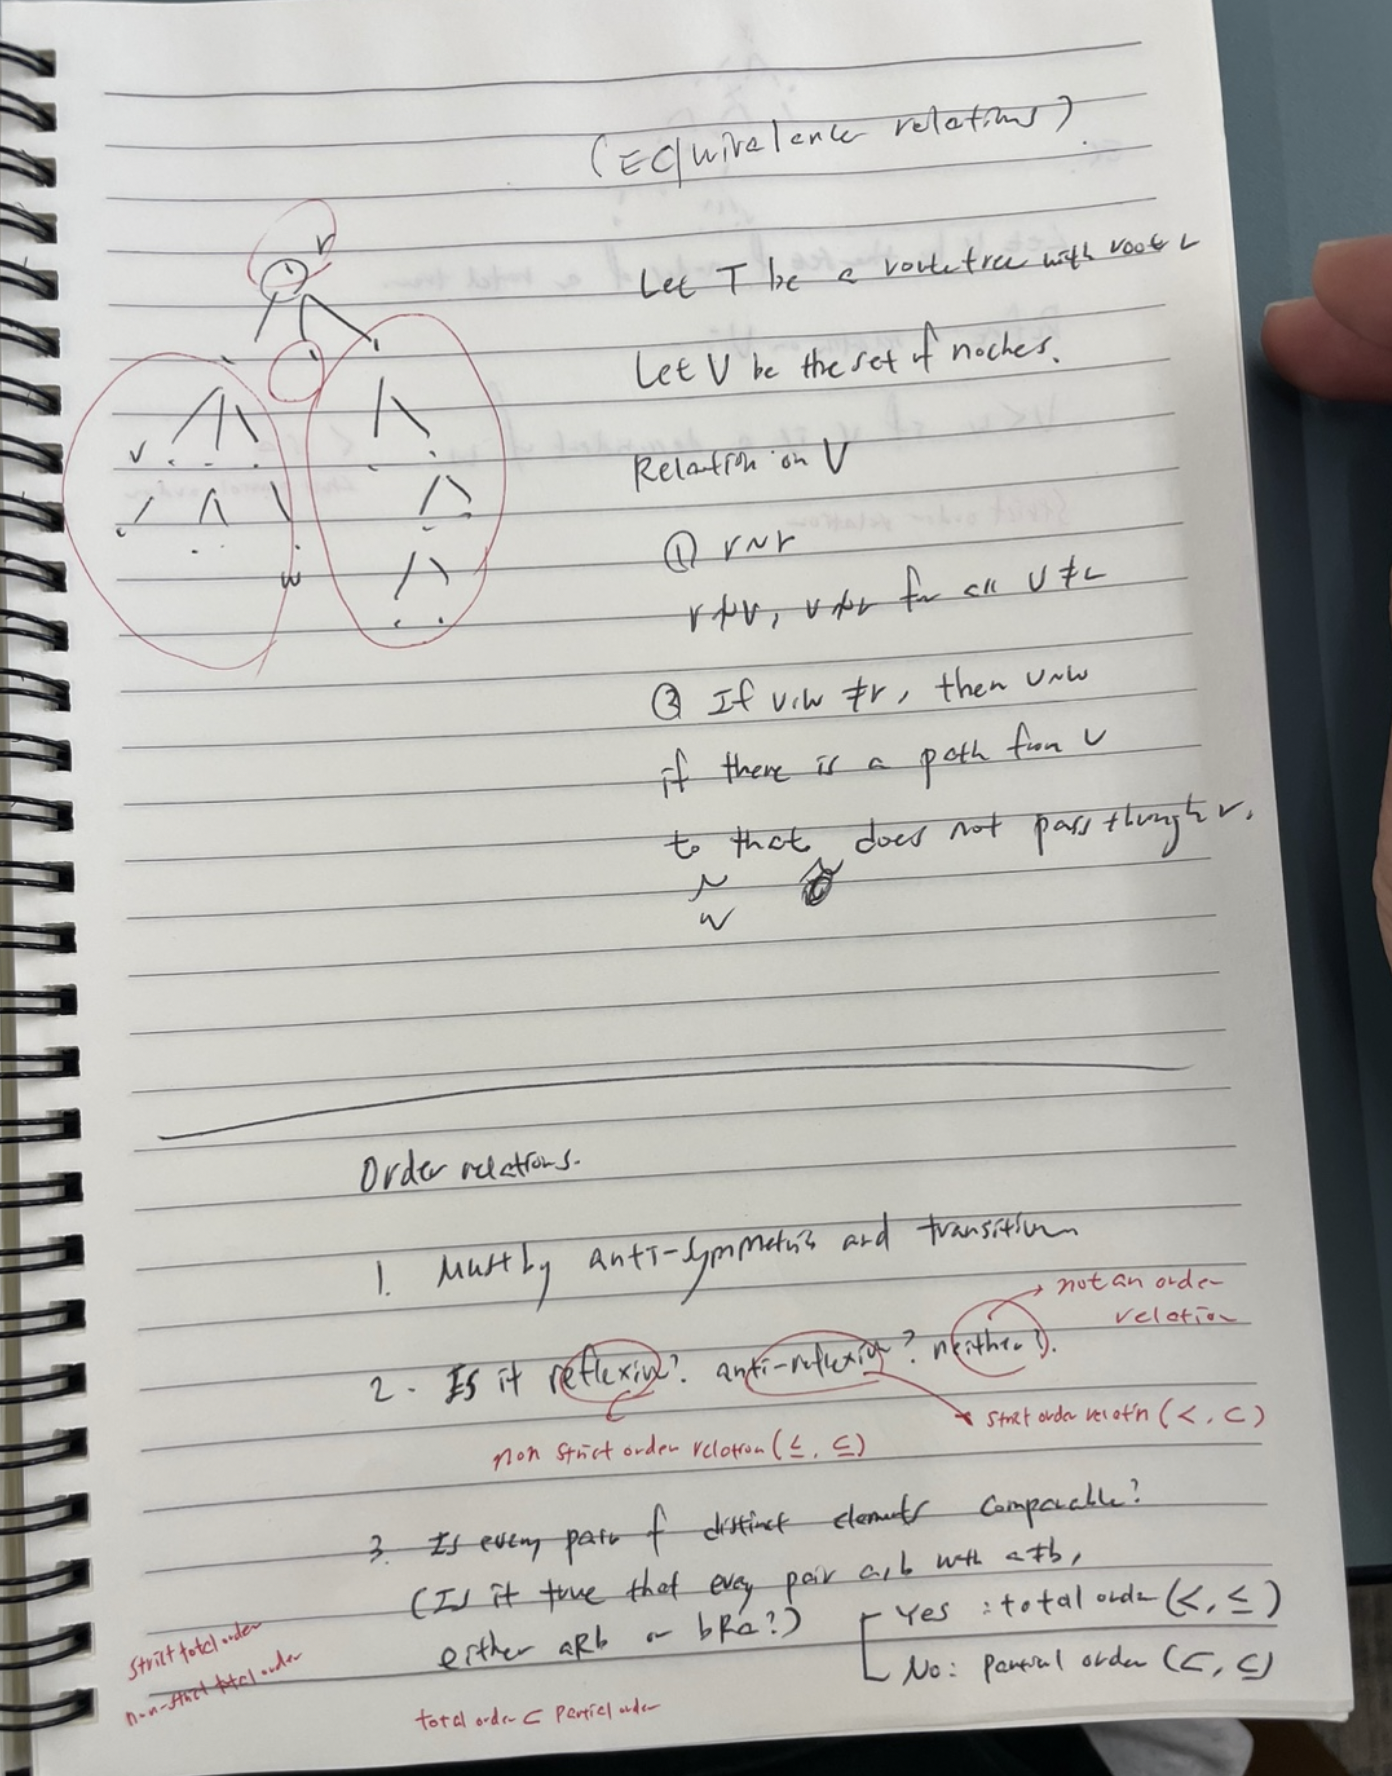 (Equivalence relations)
r
Let T be a route tree with root r
Let V be the set of noches.
v
Relation on V
① r~r
w
r≁v, v≁r for all v≠r
② If v,w ≠r, then v~w
if there is a path from v
to that does not pass through r.
w
Order relations.
1. Mustby anti-symmetric and transitive
not an order
relation
2. Is it reflexive? anti-reflexive? neither?.
strict order relation (<, ⊂)
non strict order relation (≤, ⊆)
3. Is every pair of distinct elements comparable?
(Is it true that every pair a,b with a≠b,
either aRb or bRa?)
Yes : total order (<, ≤)
No: partial order (⊂, ⊆)
strict total order
non-strict total order
total order ⊂ partial order